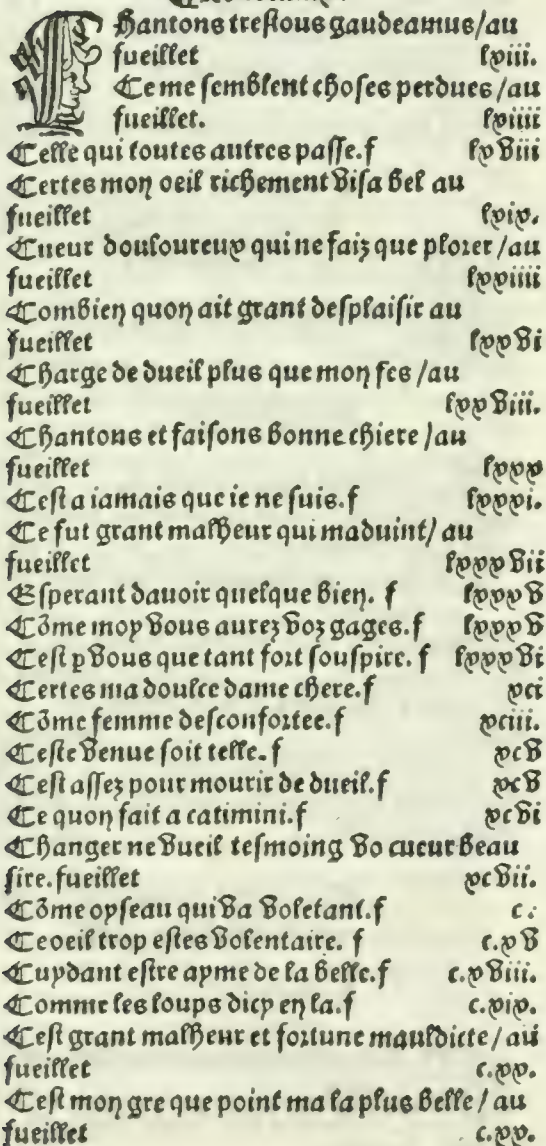 Chantons trestous gaudeamus/au
fueillet lviii.
¶Ce me semblent choses perdues/au
fueillet. lxiiii
¶Celle qui toutes autres passe.f lxviii
¶Certes mon oeil richement visa bel au
fueillet lxix.
¶Cueur douloureux qui ne faiz que plorer/au
fueillet lxxiiii
¶Combien quon ait grant desplaisir au
fueillet lxxvi
¶Charge de dueil plus que mon fes/au
fueillet lxxviii.
¶Chantons et faisons bonne chiere/au
fueillet lxxx
¶Cest a iamais que ie ne suis.f lxxxi.
¶Ce fut grant malheur qui maduint/ au
fueillet lxxxvii
¶Esperant dauoir quelque bien. f lxxxv
¶Cōme moy vous aurez voz gages.f lxxxv
¶Cest p vous que tant fort souspire. f lxxxvi
¶Certes ma doulce dame chere.f xci
¶Cōme femme desconfortee.f xciii.
¶Ceste venue soit telle.f xcv
¶Cest assez pour mourir de dueil.f xcv
¶Ce quon fait a catimini.f xcvi
¶Changer ne vueil tesmoing vo cueur beau
sire.fueillet xcvii.
¶Cōme oyseau qui va voletant.f c.
¶Ce oeil trop estes volentaire. f c.xv
¶Cuydant estre ayme de la belle.f c.xviii.
¶Comme les loups dicy en la.f c.xix.
¶Cest grant malheur et fortune mauldicte/ au
fueillet c.xx.
¶Cest mon gre que point ma la plus belle / au
fueillet c.xx.